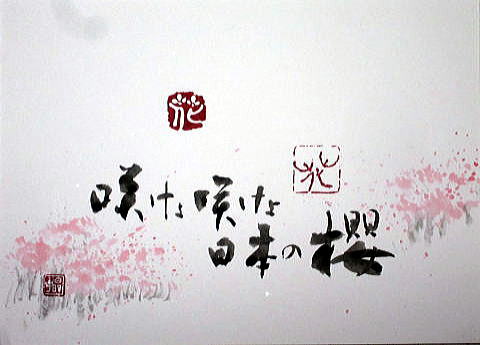 花
花
咲けよ咲けよ
日本の櫻